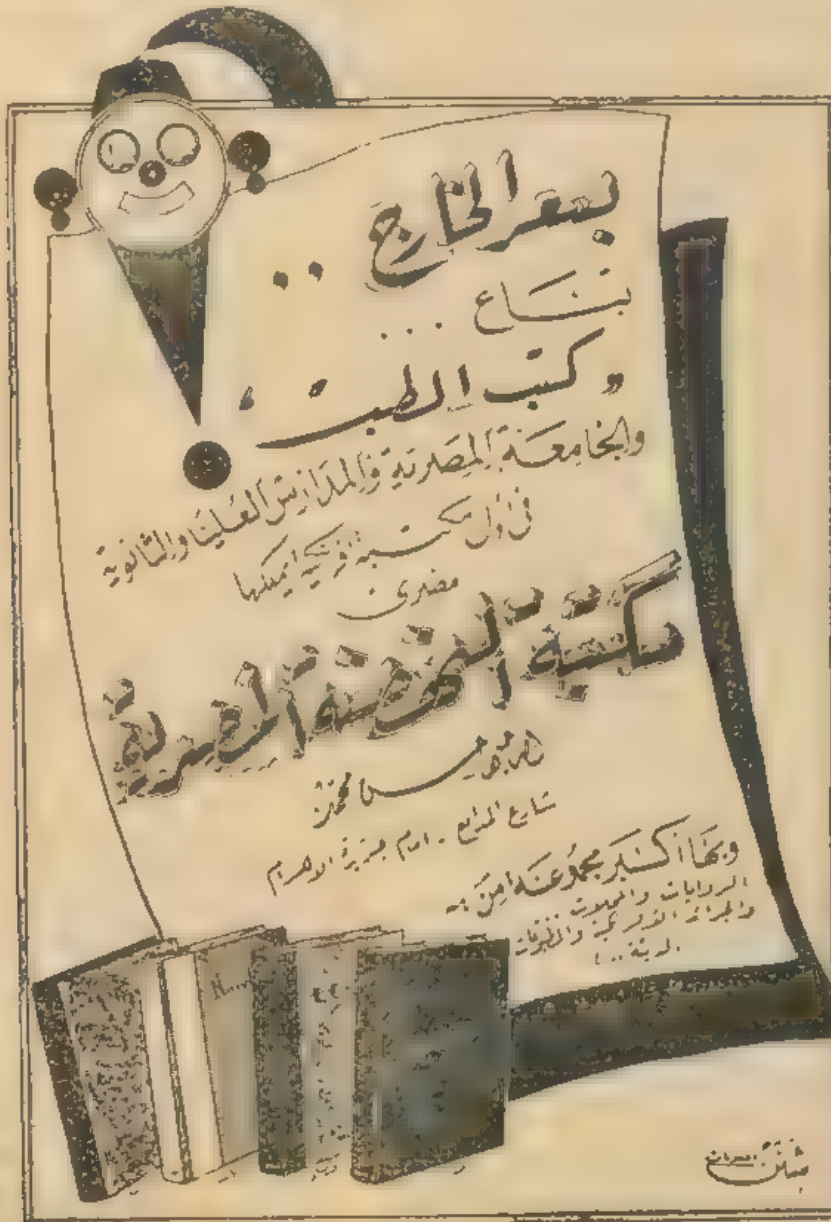 بسعر الخارج ..
تباع ...
« كتب الطب »
والجامعة المصرية والمدارس العليا والثانوية
فى أول مكتبة افرنكية يملكها
مصرى
مكتبة النهضة المصرية
لصاحبها حسن محمد
شارع المدابغ - امام جريدة الاهرام
وبها أكبر مجموعة من :-
الروايات والمجلات
والجرائد الافرنجية والمطبوعات